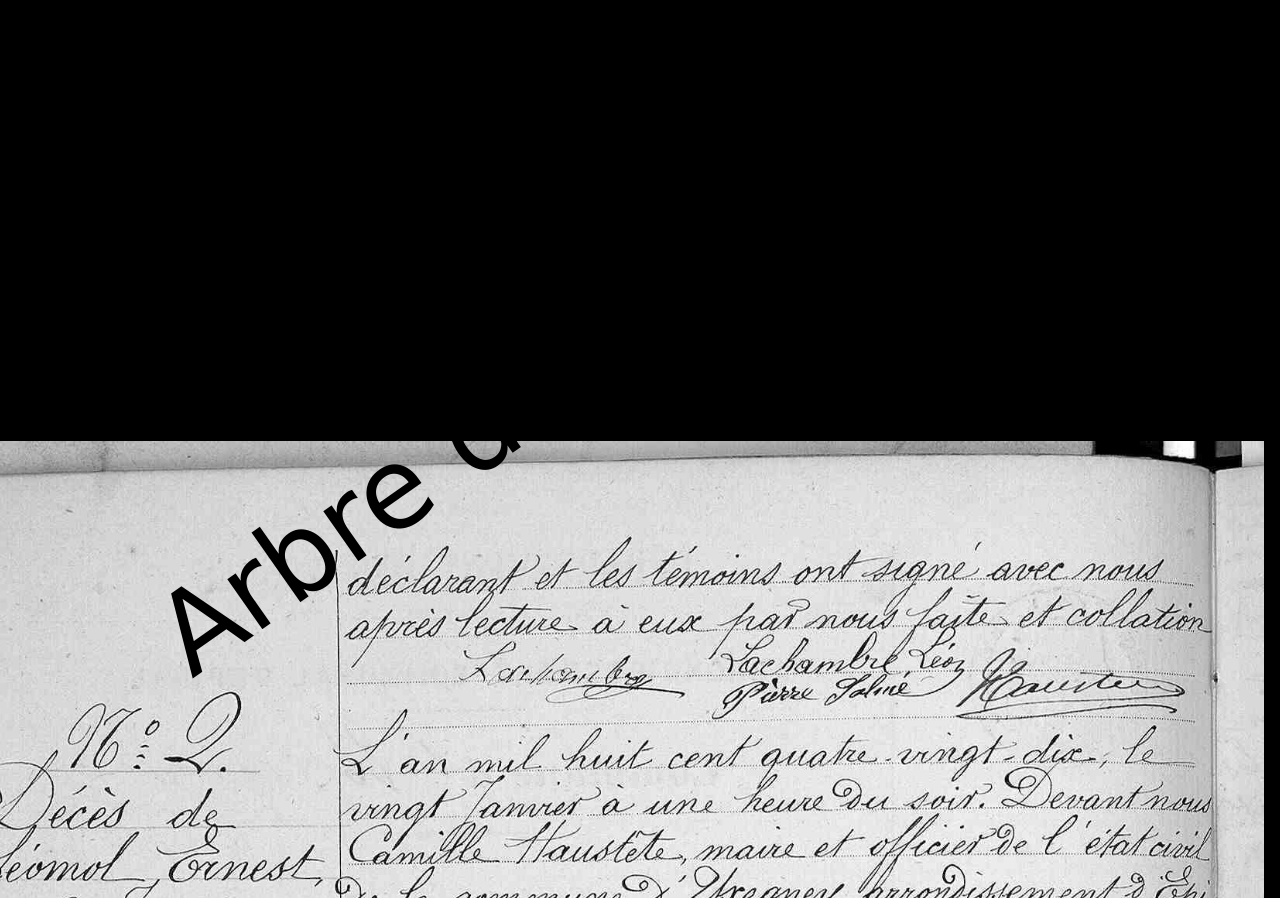 Arbre
déclarant et les témoins ont signé avec nous
après lecture à eux par nous faite et collation
Lachambre Léon
Pierre Solmé
N° 2.
L'an mil huit cent quatre-vingt-dix, le
vingt Janvier à une heure du soir. Devant nous
Décès de
Camille Haustête, maire et officier de l'état civil
Ernest,
de la commune d'Uxegney, arrondissement d'Epi